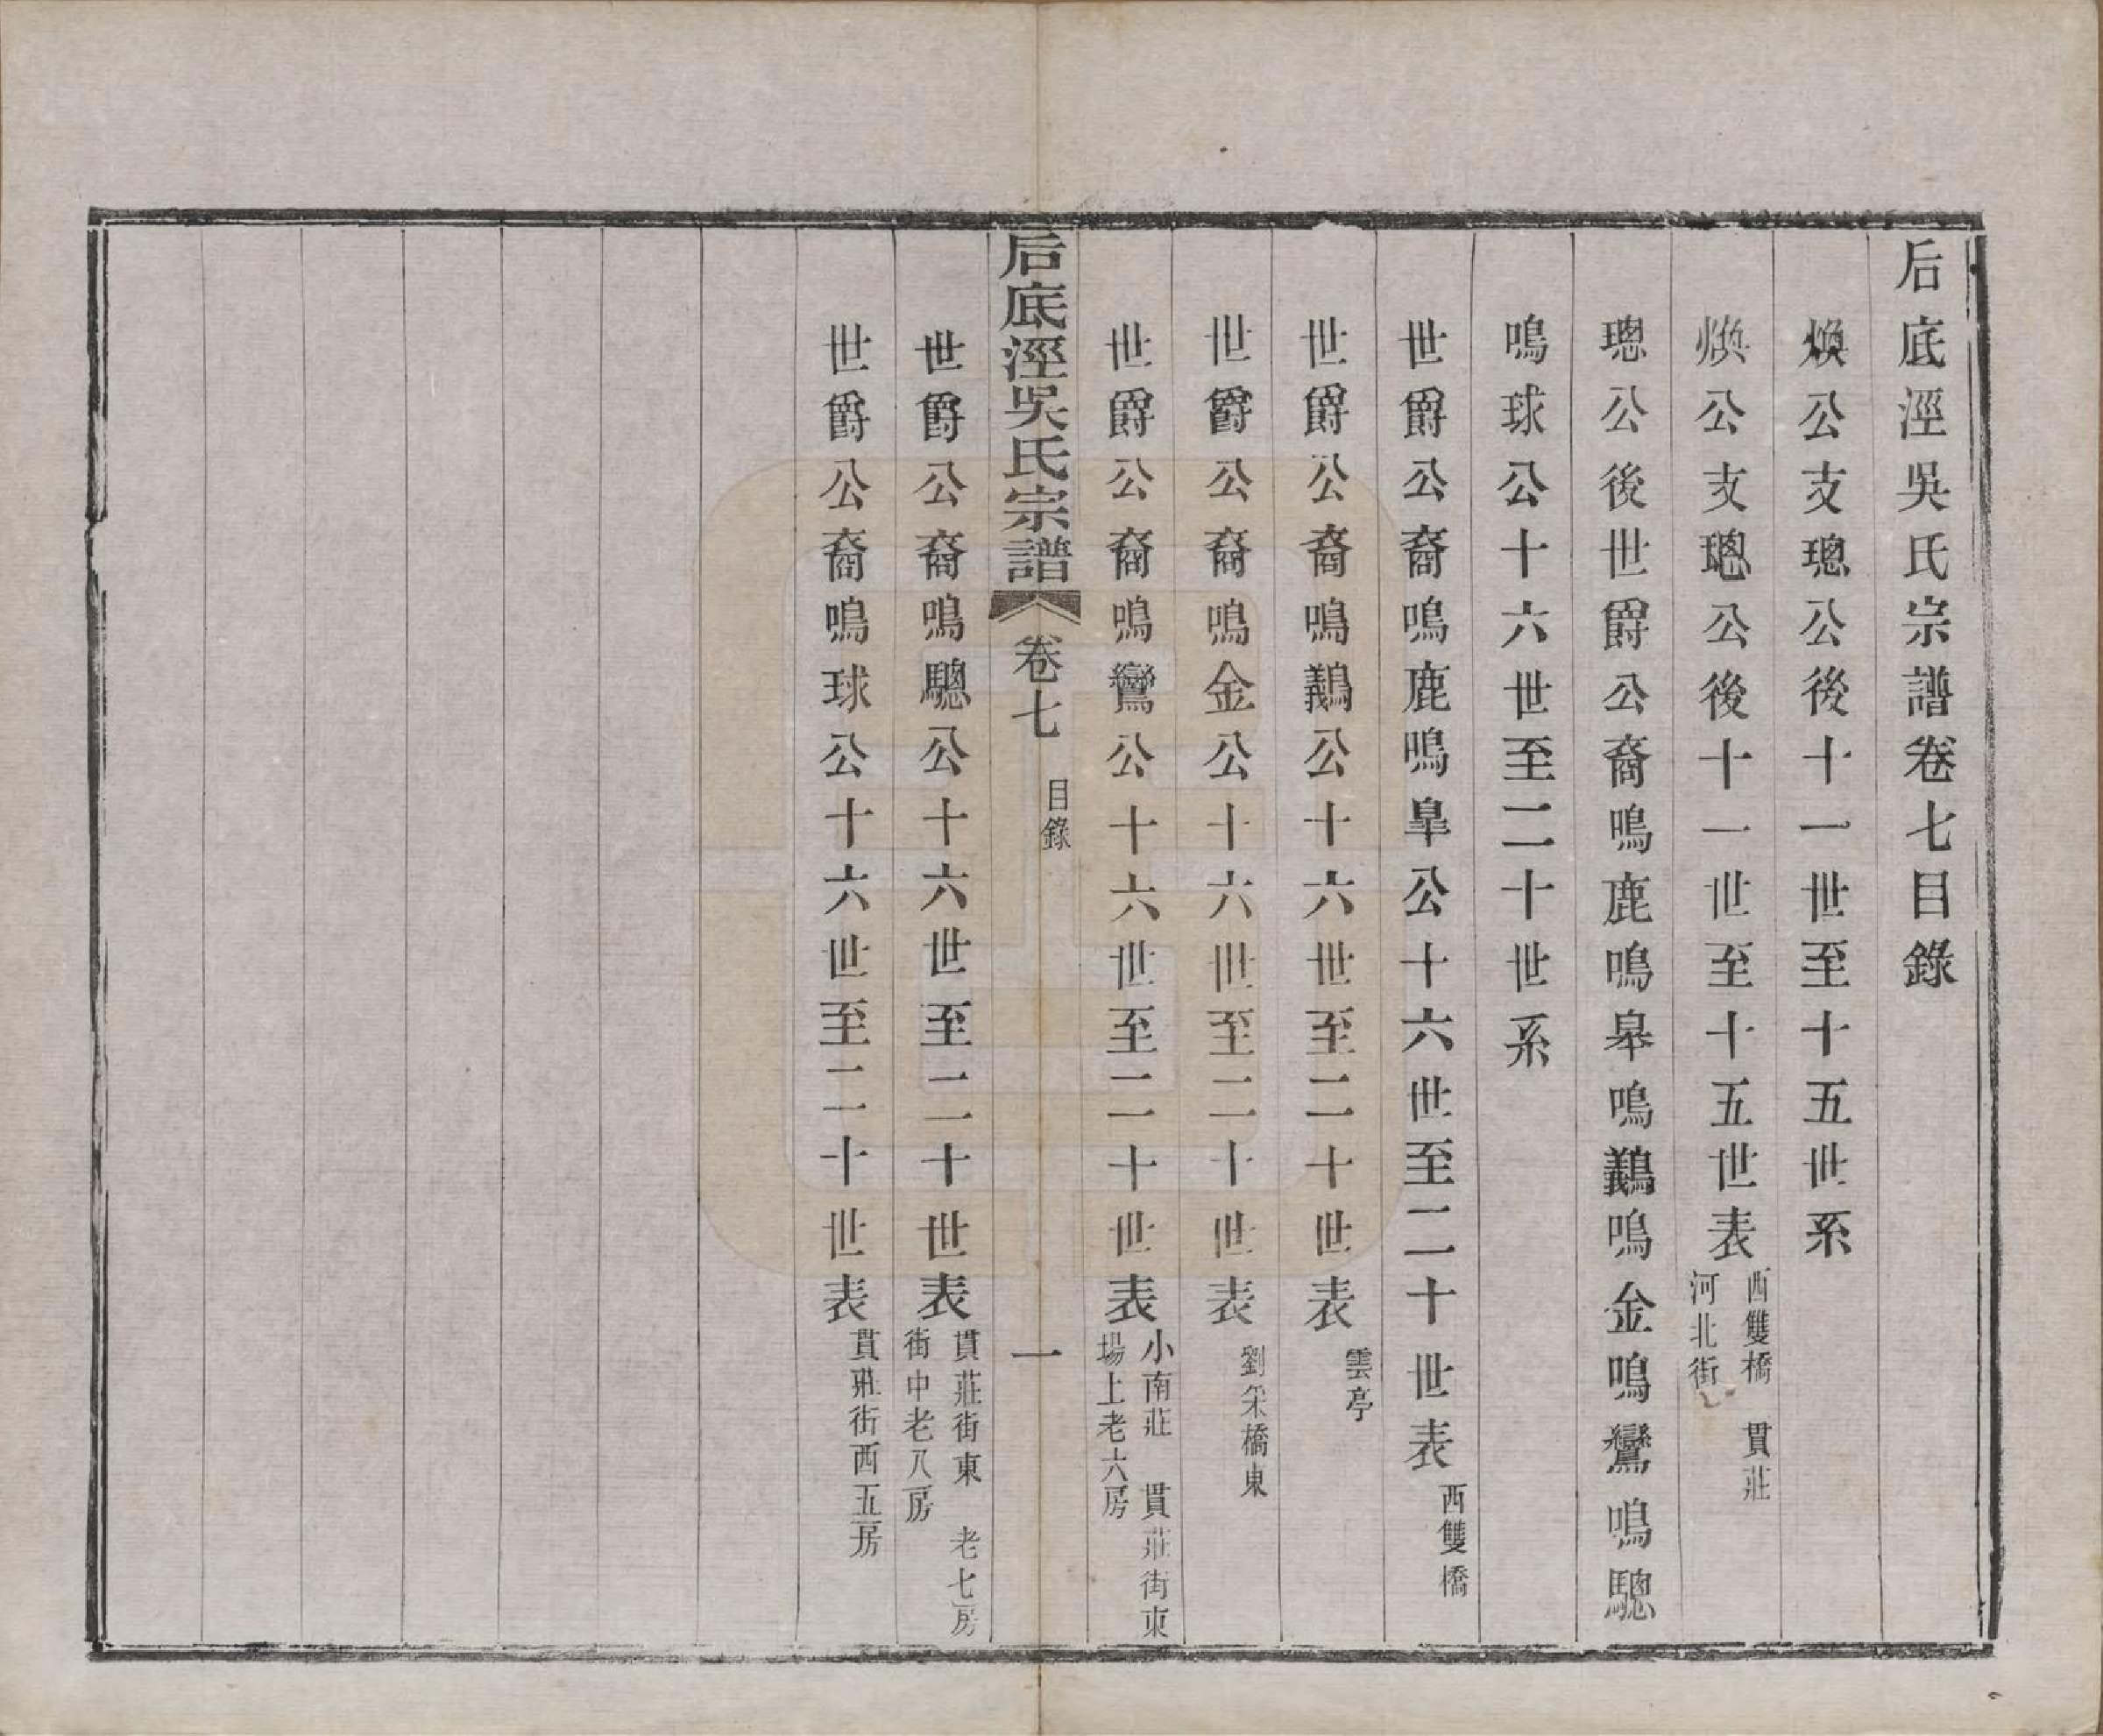 后底涇吳氏宗譜卷七目錄
煥公支璁公後十一世至十五世系
煥公支璁公後十一世至十五世表
西雙橋　貫莊
河北街
璁公後世爵公裔鳴鹿鳴皋鳴鷬鳴金鳴鸞鳴驄
鳴球公十六世至二十世系
世爵公裔鳴鹿鳴皐公十六世至二十世表
西雙橋
世爵公裔鳴鷬公十六世至二十世表
雲亭
世爵公裔鳴金公十六世至二十世表
劉采橋東
世爵公裔鳴鸞公十六世至二十世表
小南莊　貫莊街東
場上老六房
后底涇吳氏宗譜
卷七
目錄
一
世爵公裔鳴驄公十六世至二十世表
貫莊街東　老七房
街中老八房
世爵公裔鳴球公十六世至二十世表
貫莊街西五房